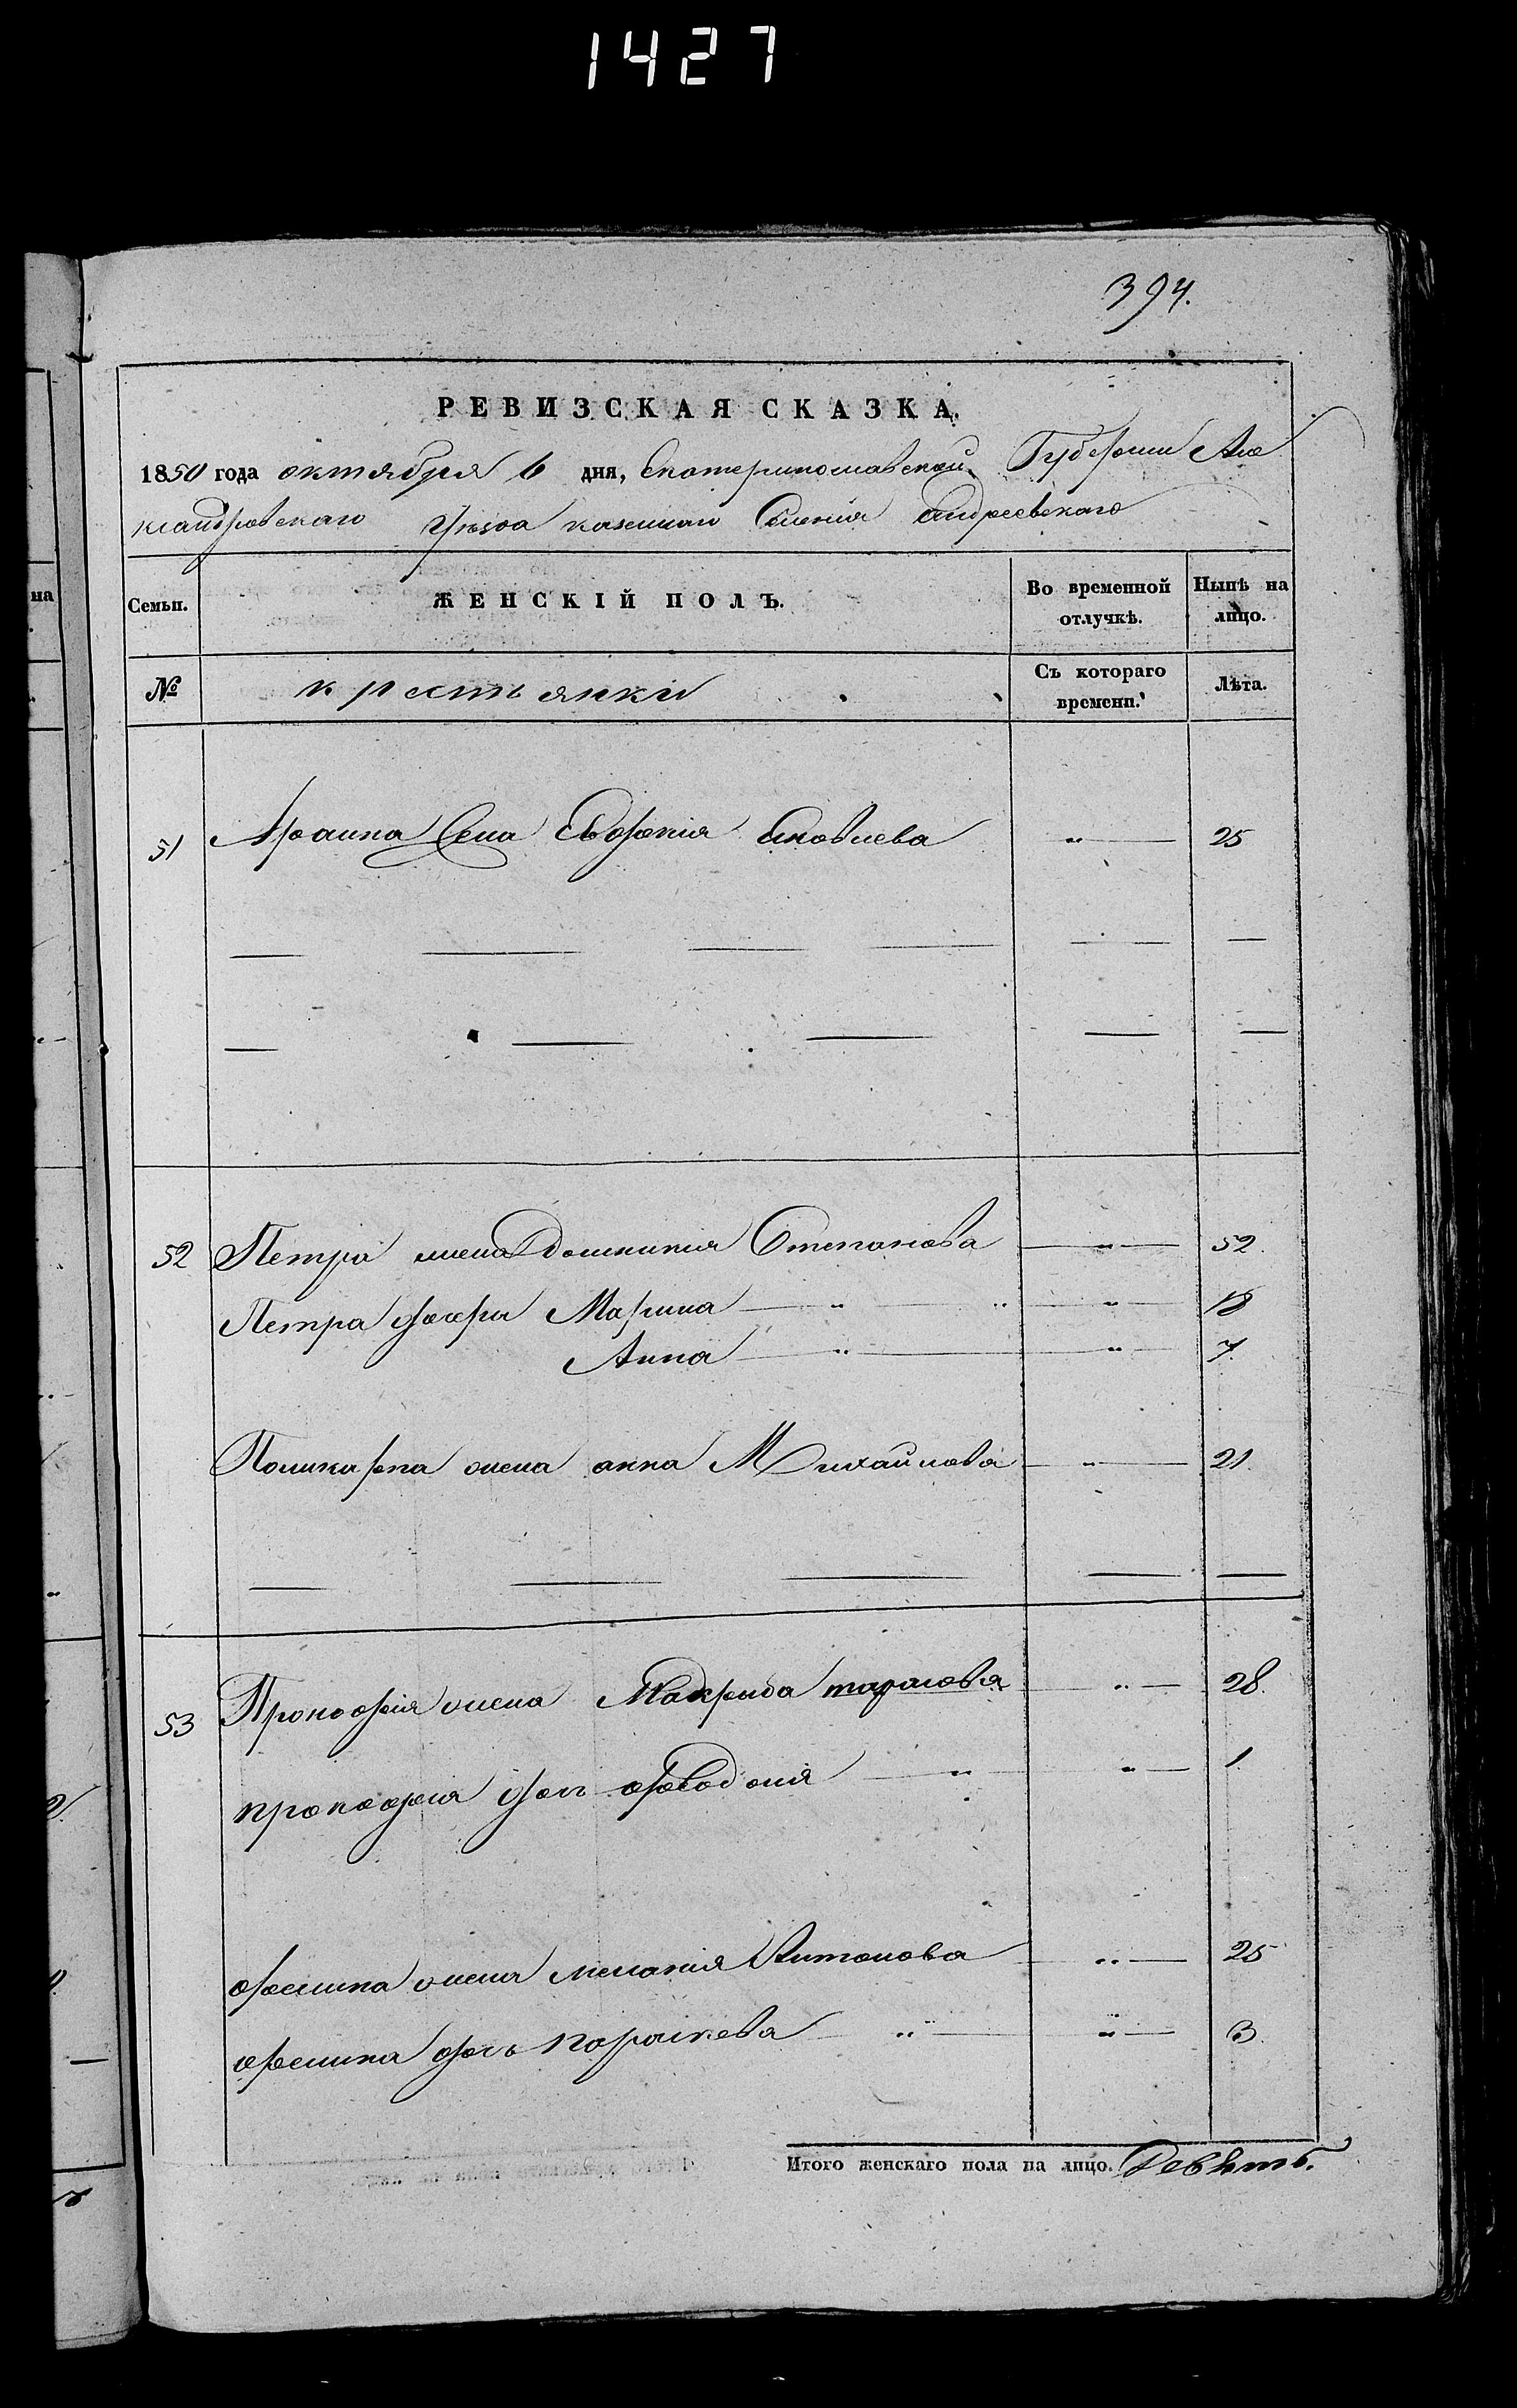 1427
394.
РЕВИЗСКАЯ СКАЗКА.
1850 года октября 6 дня, Екатеринославской Губернии Але
ксандровского Уезда казенного Селения Андреевского
на
Семьи.
ЖЕНСКІЙ ПОЛЪ.
Во временной отлучкѣ.
Нынѣ на лицо.
№
крестьянки
Съ котораго времени.
Лѣта.
51 жена Евдокия Яковлева " 25
52 Петра жена Домникия Степанова " 52.
Петра дочери Марина " " " 18
Анна " " 7.
Поликарпа жена анна Михайлова " 21.
53 Прокофия жена Макрида тарасова " 28.
прокофия дочь Феводосия " " 1.
Фомина жена мелания Антонова " 25
Фомина дочь параскева " " 3.
Итого женскаго пола на лицо. Девять.